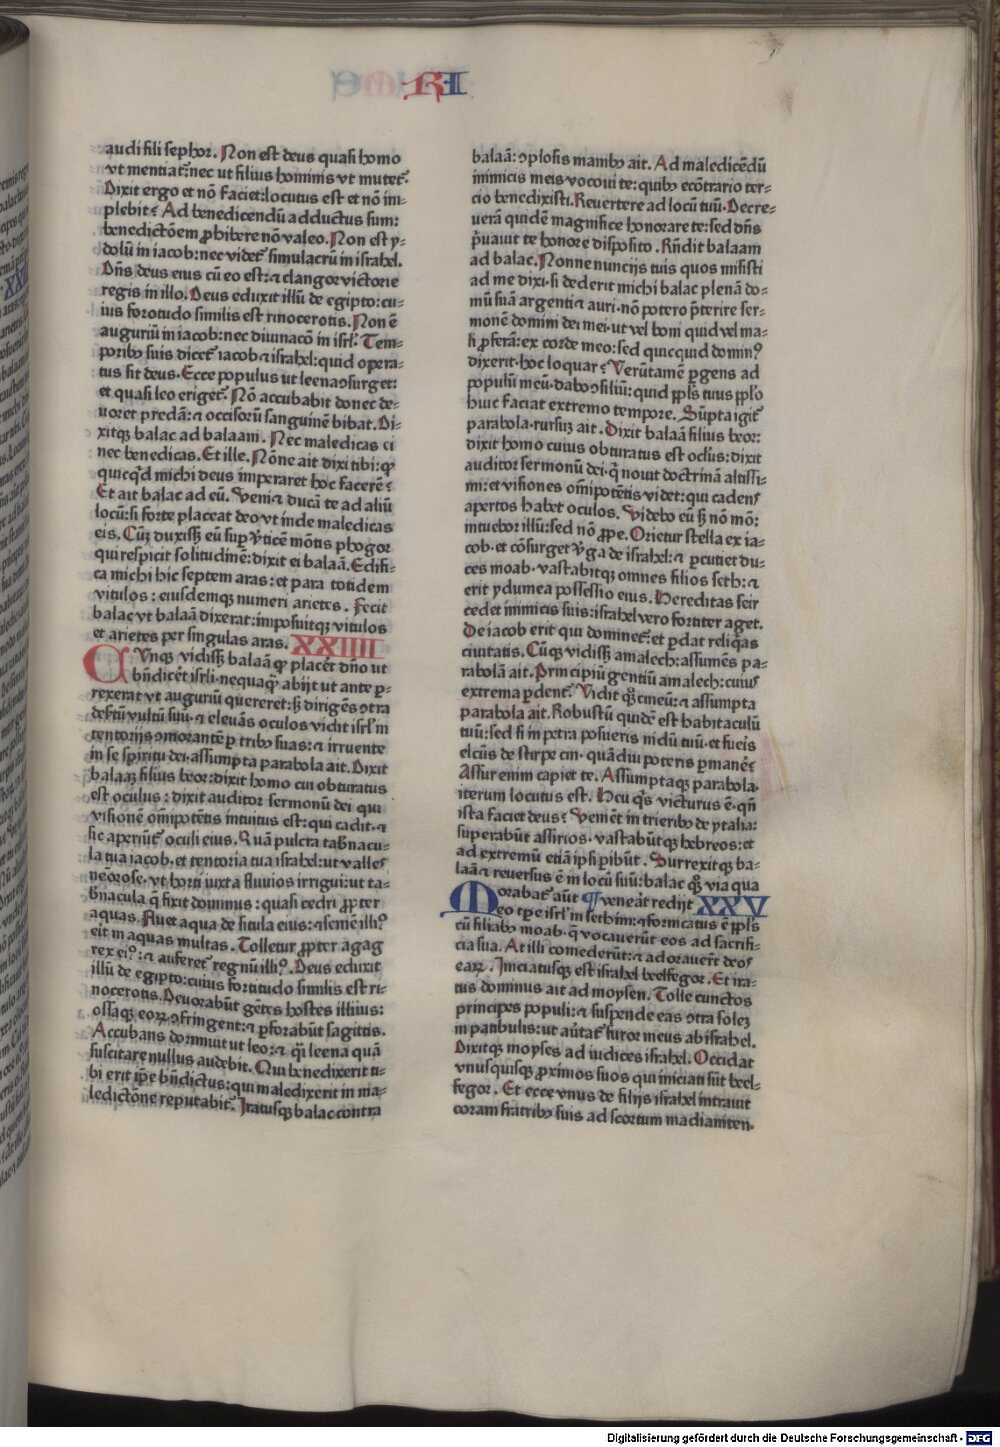 ER
audi fili sephor. Non est deus quasi homo
vt mentiat᷑: nec ut filius hominis vt mutet᷑.
Dixit ergo et nō faciet: locutus est et nō im-
plebit? Ad benedicendū adductus sum:
benedictōem ꝓhibere nō valeo. Non est y-
dolū in iacob: nec videt᷑ simulacrū in israhel.
Dn̄s deus eius cū eo est: ⁊ clangor victorie
regis in illo. Deus eduxit illū de egipto: cu-
ius fortitudo similis est rinocerotis. Non ē
auguriū in iacob: nec diuinacō in isrl̓. Tem-
porib᷒ suis dicet᷑ iacob ⁊ israhel: quid opera-
tus sit deus. Ecce populus ut leena ꝯsurget:
et quasi leo eriget᷑. Nō accubabit donec de-
uoret predā: ⁊ occisorū sanguinē bibat. Di-
xitqꝫ balac ad balaam. Nec maledicas ei
nec benedicas. Et ille. Nōne ait dixi tibi: ꝙ
quicq̇d michi deus imperaret hoc facerē?
Et ait balac ad eū. Veni ⁊ ducā te ad aliū
locū: si forte placeat deo vt inde maledicas
eis. Cūꝫ duxissꝫ eū suꝑ v̓ticē mōtis phogor
qui respicit solitudinē: dixit ei balaā. Edifi-
ca michi hic septem aras: et para totidem
vitulos: eiusdemqꝫ numeri arietes. Fecit
balac vt balaā dixerat: imposuitqꝫ vitulos
et arietes per singulas aras. XXIIII
Cvnqꝫ vidissꝫ balaā ꝙ placet᷑ dn̄o ut
bn̄dicet᷑ isrl̓i. nequaq̄ꝫ abijt ut ante ꝑ-
rexerat vt auguriū quereret: sꝫ dirigēs ꝯtra
desertū vultū suū. ⁊ eleuās oculos vidit isrl̓ in
tentorijs ꝯmorantē ꝑ trib᷒ suas: ⁊ irruente
in se spiritu dei. assumpta parabola ait. Dixit
balaaꝫ filius beor: dixit homo cui obturatus
est oculus: dixit auditor sermonū dei qui
visionē om̄ipotētis intuitus est: qui cadit. ⁊
sic aperiūt᷑ oculi eius. Quā pulcra tab̓nacu-
la tua iacob. et tentoria tua israhel: ut valles
nēorose. vt horti iuxta fluuios irrigui: ut ta-
b̓nacula q̄ fixit dominus: quasi cedri ꝓpter
aquas. Fluet aqua de situla eius: ⁊ semē illi᷒
erit in aquas multas. Tolletur ꝓpter agag
rex ei᷒: ⁊ auferet᷑ regnū illi᷒. Deus eduxit
illū de egipto: cuius fortitudo similis est ri-
nocerotis. Deuorabūt gētes hostes illius:
ossaqꝫ eoꝝ ꝯfringent: ⁊ ꝑforabūt sagittis.
Accubans dormiuit ut leo: ⁊ q̄i leena quā
suscitare nullus audebit. Qui benedixerit ti-
bi erit ip̄e bn̄dictus: qui maledixerit in ma-
ledictōne reputabit᷑. Iratusqꝫ balac contra
balaā: ꝯplosis manib᷒ ait. Ad maledicēdū
inimicis meis vocaui te: quib᷒ ecōtrario ter-
cio benedixisti. Reuertere ad locū tuū. Decre-
uerā quidē magnifice honorare te: sed dn̄s
p̓uauit te honore disposito. Rn̄dit balaam
ad balac. Nonne nuncijs tuis quos misisti
ad me dixi. si dederit michi balac plenā do-
mū suā argenti ⁊ auri. nō potero p̄terire ser-
monē domini dei mei. ut vel boni quid vel ma-
li ꝓferā: ex corde meo: sed quicquid domin᷒
dixerit. hoc loquar? Verūtamē ꝑgens ad
populū meū. dabo ꝯsiliū: quid ppl̓s tuus ppl̓o
huic faciat extremo tempore. Sūpta igit᷑
parabola. rursuꝫ ait. Dixit balaā filius beor:
dixit homo cuius obturatus est oclūs: dixit
auditor sermonū dei. q̇ nouit doctrinā altissi-
mi: et visiones om̄ipotētis videt: qui cadens
apertos habet oculos. Videbo eū sꝫ nō mō:
intuebor illū: sed nō ꝓpe. Orietur stella ex ia-
cob. et cōsurget v̓ga de israhel: ⁊ ꝑcutiet du-
ces moab. vastabitqꝫ omnes filios seth: ⁊
erit ydumea possessio eius. Hereditas seir
cedet inimicis suis: israhel vero fortiter aget.
De iacob erit qui dominet᷑: et ꝑdat reliq̇as
ciuitatis. Cūqꝫ vidissꝫ amalech: assumēs pa-
rabolā ait. Principiū gentiū amalech: cuius
extrema ꝑdent᷑. Vidit qꝫ cineū: ⁊ assumpta
parabola ait. Robustū quidē est habitaculū
tuū: sed si in petra posueris nidū tuū. et fueis
elc̄us de stirpe cin. quādiu poteris ꝑmanē?
Assur enim capiet te. Assumptaqꝫ parabola.
iterum locutus est. Heu q̇s victurus ē. qn̄
ista faciet deus? Veniēt in trierib᷒ de ytalia:
superabūt assirios. vastabūtqꝫ hebreos: et
ad extremū etiā ip̄si pibūt. Surrexitqꝫ ba-
laā ⁊ reuersus ē in locū suū: balac qꝫ via qua
Morabat᷑ aūt ¶ veneāt redijt XXV
eo tp̄e isrl̓ in sethim: ⁊ fornicatus ē ppl̓s
cū filiab᷒ moab. q̄ vocauerūt eos ad sacrifi-
cia sua. At illi comederūt: ⁊ adorauer̄t deos
eaꝝ. Iniciatusqꝫ est israhel beelfegor. Et ira-
tus dominus ait ad moysen. Tolle cunctos
principes populi: ⁊ suspende eas ꝯtra soleꝫ
in patibulis: ut au̓tat᷑ furor meus ab israhel.
Dixitqꝫ moyses ad iudices israhel. Occidat
vnusquisqꝫ ꝓximos suos qui iniciati sūt beel-
fegor. Et ecce vnus de filijs israhel intrauit
coram fratrib᷒ suis ad scortum madianiten.
Digitalisierung gefördert durch die Deutsche Forschungsgemeinschaft - DFG